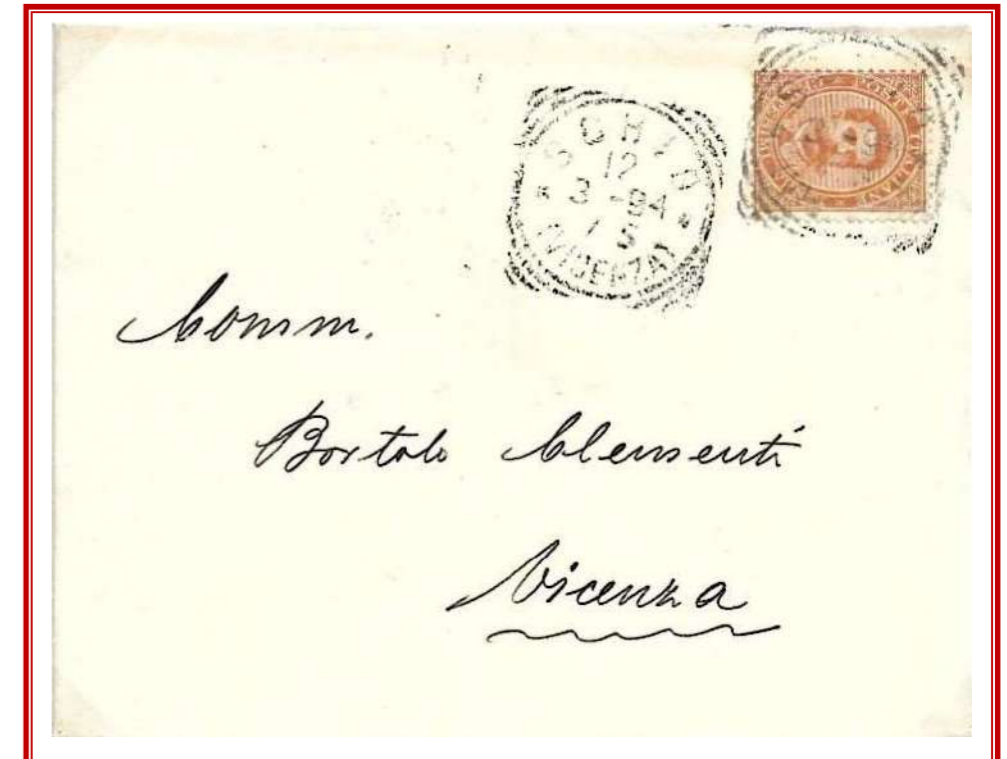 SCHIO
12
3 - 94
7 S
(VICENZA)
Comm.
Bortolo Clementi
Vicenza